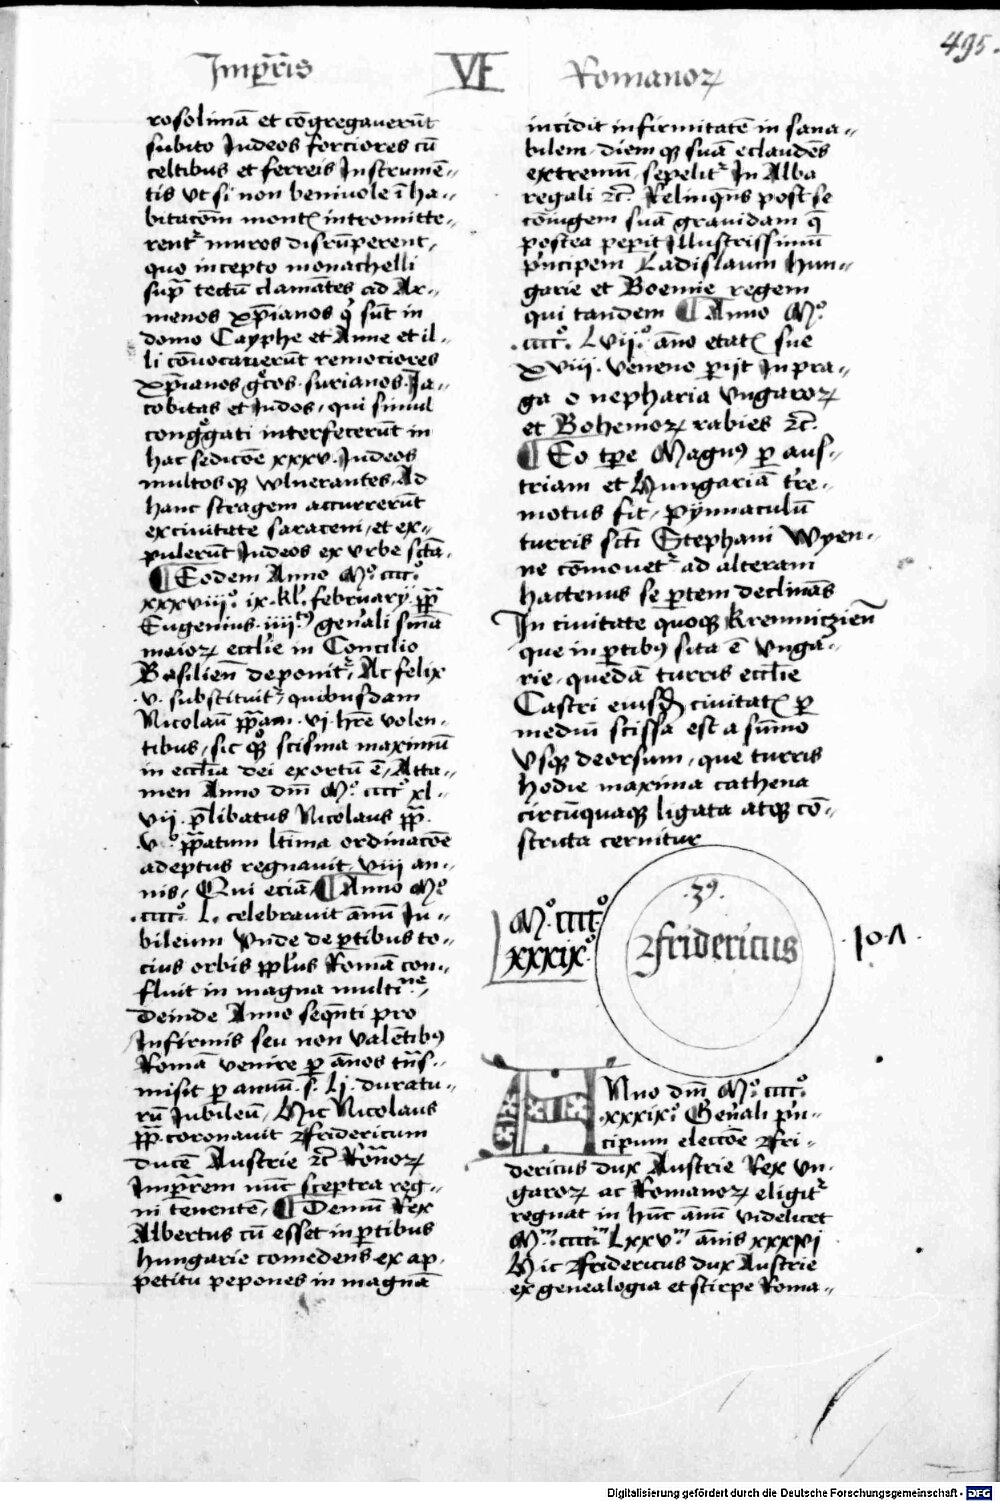 495.
Imp̄ris VI Romanoꝝ
rosolimā et cōgregaverūt
subito Judeos forciores cū
celtibus et ferreis Instrumē-
tis Ut si non benivole ī ha-
bitacōm montꝭ intromitte-
rentᷣ muros disrūperent,
quo incepto monachelli
sup̄ tectū clamātes ad Ar-
menos xp̄ianos qͥ sūt in
domo Cayphe et Anne et il-
li cōvocaverūt remociores
xp̄ianos gͤcos surianos Ja-
cobitas et Indos, qui simul
congͤgati interfecerūt in
hac sedicōe xxxv Judeos
multosqꝫ vulnerantes, Ad
hanc stragem accurrerūt
ex civitate saraceni, et ex-
pulerūt Judeos ex urbe sctā.
¶ Eodem Anno Mº ccccº
xxxviijº ix. kl̄. february pp̄
Eugenius iiijtꝰ gen̄ali sinā
maioꝝ eccl̄ie in Concilio
Basilien̄ deponitᷣ, Ac felix
.v. substituitᷣ, quibusdam
Nicolaū pp̄am .vj. hr̄e volen-
tibus, sic qꝫ scisma maximū
in eccl̄ia dei exortū ē, Atta-
men Anno dn̄i Mº ccccº xl-
vij. p̄libatus Nicolaus pp̄
.v.º pp̄atum ltīma ordinacōe
adeptus regnavit viij an-
nis, Qui eciā, ¶ Anno Mº
.ccccº. L. celebravit ānū Ju-
bileum Unde de p̱tibus to-
cius orbis pp̄lus Romā con-
fluit in magna multine,
Deinde Anno seqn̄ti pro
Infirmis seu non valētibꝰ
Romā venire p̱ ānos tn̄s-
misit p̱ annū .s. Lj. duratu-
rū Jubileū, Hic Nicolaus
pp̄ coronavit Fridericum
ducē Austrie ⁊c̄ Romoꝝ
Imp̄rem nūc sceptra reg-
ni tenentē, ¶ Demū Rex
Albertus cū esset in p̱tibus
hungarie comedens ex ap-
petitu pepones in magnā
incidit infirmitatē in sana-
bilem, diemqꝫ suā eclaudēs
extremū, sepelitᷣ In Alba
regali ⁊c̄. Relinqn̄s post se
cōiugem suā gravidam q̄
postea pepit Illustrissimū
pͥncipem Ladislaum Hun-
garie et Boemie regem
qui tandem ¶ Anno Mº
.ccccº. Lvijº. āno etatꝭ sue
xviij. veneno p̱ijt In pra-
ga o nepharia Ungaroꝝ
et Bohemoꝝ rabies ⁊c̄.
¶ Eo tp̄e Magnꝰ p̱ aus-
triam et Hungariā tͤre-
motus fit, pynnaculū
turris scti Stephani Wyen-
ne cōmovetᷣ ad alteram
hactenus se p̱tem declinās
In civitate quoqꝫ Kremniczien̄
que in p̱tibꝰ sita ē Unga-
rie, quedā turris eccl̄ie
Castri eiusdꝫ civitatꝭ p̱
mediū scissa est a sūmo
Usqꝫ deorsum, que turris
hodie maxima cathena
circūquaqꝫ ligata atqꝫ cō-
structa cernitur
Mº. ccccº
xxxixº.
.39.
Fridericus
.10.Λ.
ANno dn̄i Mº. ccccº.
xxxixº. Gen̄ali pͥn-
cipum eleccōe Fri-
dericus dux Austrie Rex Un-
garoꝝ ac Romanoꝝ eligitᷣ
regnat in hūc ānū videlicet
Mm ccccm Lxxvm ānis xxxvj
Hic Fridericus dux Austrie
ex genealogia et stirpe Roma-
Digitalisierung gefördert durch die Deutsche Forschungsgemeinschaft - DFG